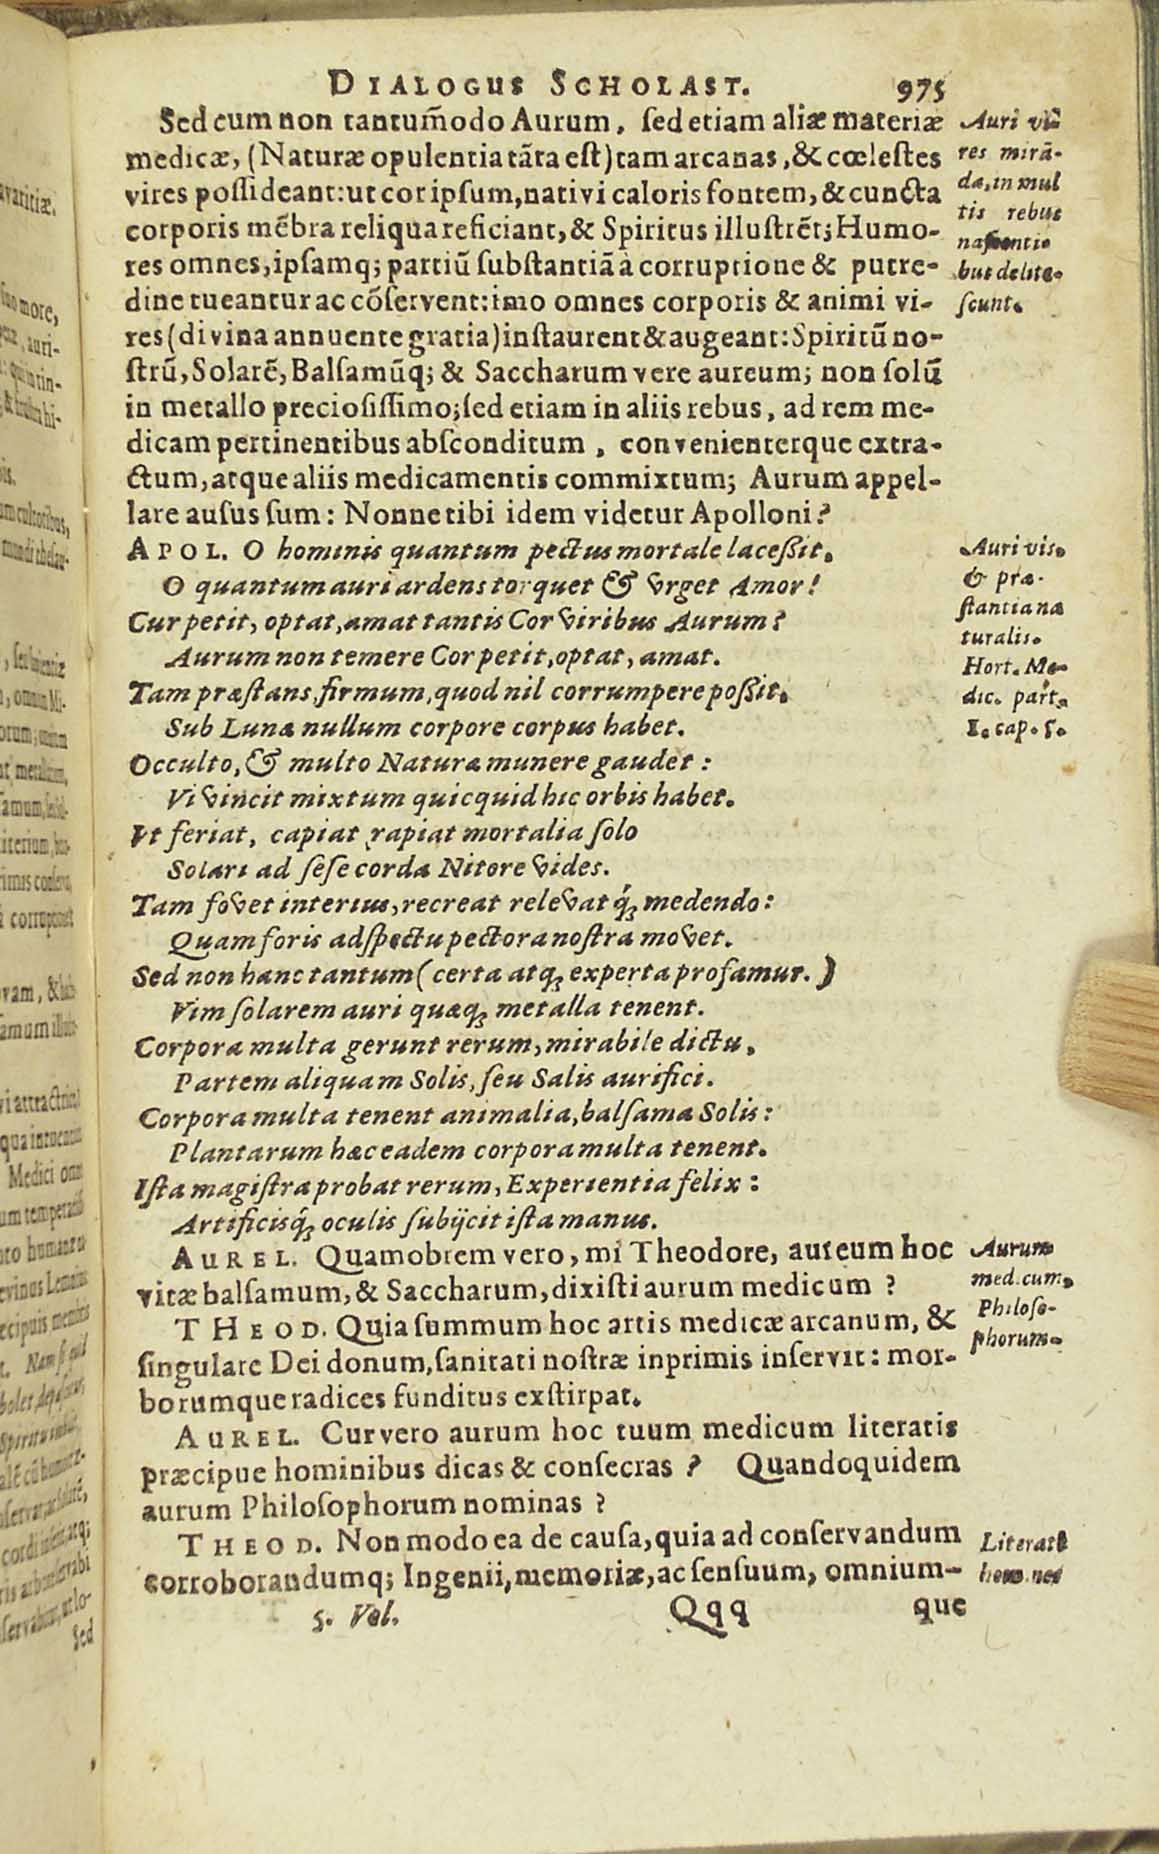 DIALOGUS SCHOLAST. 975
Sed cum non tantum̃odo Aurum, ſed etiam aliæ materiæ
medicæ, (Naturæ opulentia tãta eſt) tam arcanas, & cœleſtes
vires poſſideant: ut cor ipſum, nativi caloris fontem, & cuncta
corporis mẽbra reliqua reficiant, & Spiritus illuſtrẽt; Humo-
res omnes, ipſamq; partiũ ſubſtantiã à corruptione & putre-
dine tueantur ac cõſervent: imo omnes corporis & animi vi-
res (divina annuente gratia) inſtaurent & augeant: Spiritũ no-
ſtrũ, Solarẽ, Balſamũq; & Saccharum vere aureum; non ſolũ
in metallo precioſiſſimo; ſed etiam in aliis rebus, ad rem me-
dicam pertinentibus abſconditum, convenienterque extra-
ctum, atque aliis medicamentis commixtum; Aurum appel-
lare auſus ſum: Nonne tibi idem videtur Apolloni?
Auri vi-
res mirã-
dæ, in mul
tis rebus
naſcenti-
bus delite-
ſcunt.
APOL. O hominis quantum pectus mortale laceßit,
O quantum auri ardens torquet & vrget Amor!
Cur petit, optat, amat tantis Cor viribus Aurum?
Aurum non temere Cor petit, optat, amat.
Tam præſtans, firmum, quod nil corrumpere poßit,
Sub Luna nullum corpore corpus habet.
Occulto, & multo Naturæ munere gaudet:
Vi vincit mixtum quicquid hic orbis habet.
Vt feriat, capiat rapiat mortalia ſolo
Solari ad ſeſe corda Nitore vides.
Tam fovet interius, recreat relevatq́; medendo:
Quam foris adſpectu pectora noſtra movet.
Sed non hanc tantum (certa atq; experta profamur.)
Vim ſolarem auri quæq; metalla tenent.
Corpora multa gerunt rerum, mirabile dictu,
Partem aliquam Solis, ſeu Salis aurifici.
Corpora multa tenent animalia, balſama Solis:
Plantarum hæc eadem corpora multa tenent.
Iſta magiſtra probat rerum, Experientia felix:
Artificisq́; oculis ſubijcit iſta manus.
Auri vis,
& præ-
ſtantia na
turalis.
Hort. Me-
dic. part.
1. cap. 5.
AUREL. Quamobrem vero, mi Theodore, aureum hoc
vitæ balſamum, & Saccharum, dixiſti aurum medicum?
THEOD. Quia ſummum hoc artis medicæ arcanum, &
ſingulare Dei donum, ſanitati noſtræ inprimis inſervit: mor-
borumque radices funditus exſtirpat.
Aurum
medicum,
Philoſo-
phorum.
AUREL. Cur vero aurum hoc tuum medicum literatis
præcipue hominibus dicas & conſecras? Quandoquidem
aurum Philoſophorum nominas?
THEOD. Non modo ea de cauſa, quia ad conſervandum
corroborandumq; Ingenii, memoriæ, ac ſenſuum, omnium-
Literati
homines
5. Vol. Qqq que